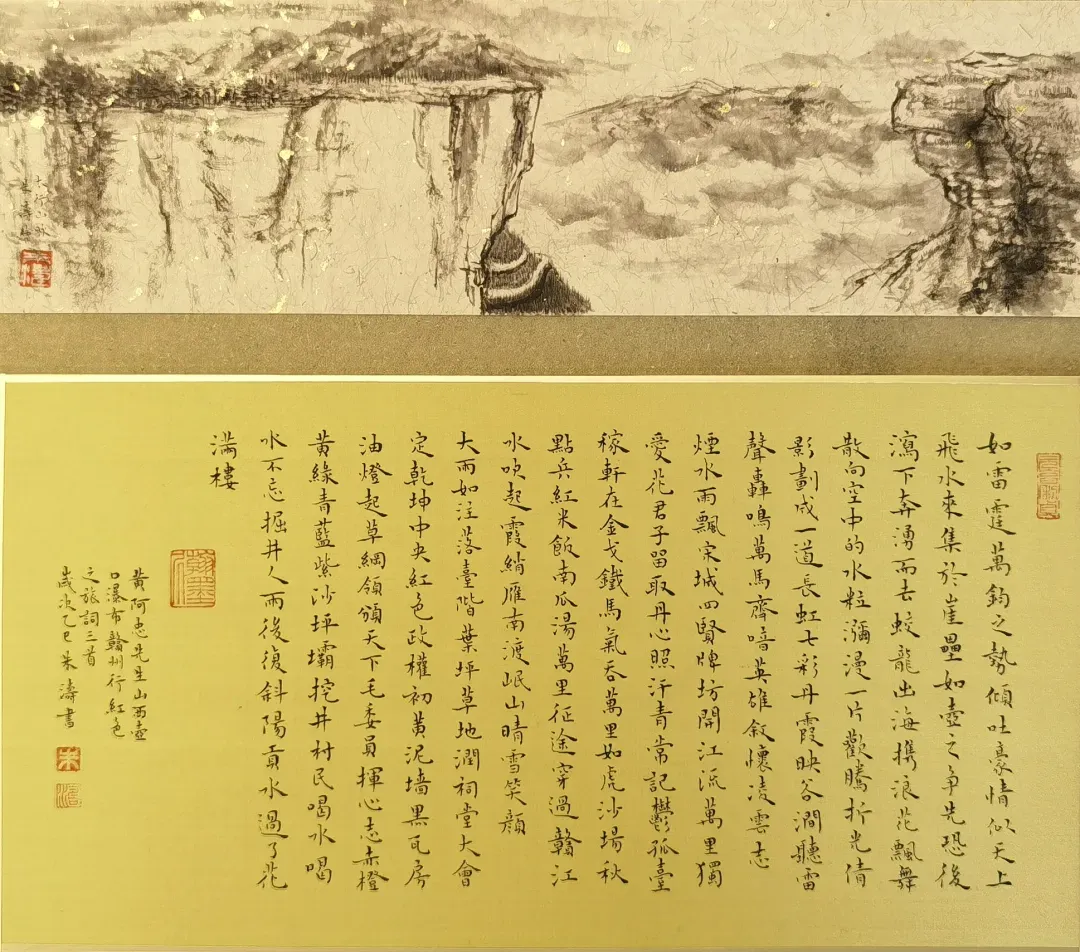 如雷霆萬鈞之勢傾吐豪情似天上
飛水來集於崖壘如壺之爭先恐後
瀉下奔湧而去蛟龍出海攜浪花飄舞
散向空中的水粒瀰漫一片歡騰折光倩
影劃成一道長虹七彩丹霞映谷澗聽雷
聲轟鳴萬馬齊喑英雄敘懷凌雲志
煙水雨飄宋城四賢牌坊開江流萬里獨
愛花君子留取丹心照汗青常記鬱孤臺
稼軒在金戈鐵馬氣吞萬里如虎沙場秋
點兵紅米飯南瓜湯萬里征途穿過贛江
水吹起霞綃雁南渡岷山晴雪笑顏
大雨如注落臺階葉坪草地潤祠堂大會
定乾坤中央紅色政權初黃泥墻黑瓦房
油燈起草綱領頒天下毛委員揮心志赤橙
黃綠青藍紫沙坪壩挖井村民喝水喝
水不忘掘井人雨後復斜陽貢水過了花
滿樓
黃阿忠先生山西壺
口瀑布贛州行紅色
之旅詞三首
歲次乙巳朱濤書
朱